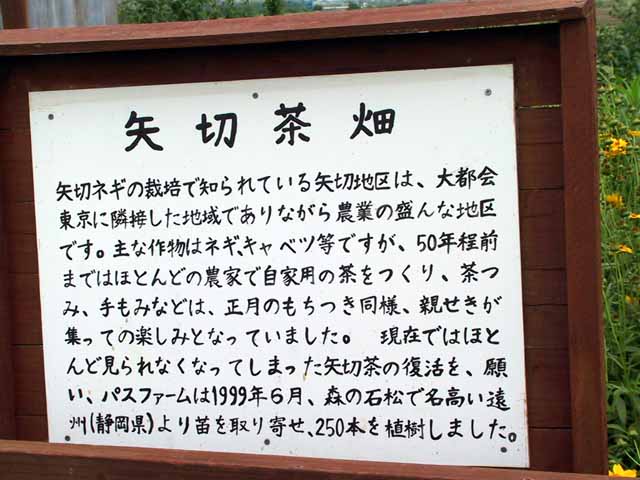 矢切茶畑
矢切ネギの栽培で知られている矢切地区は、大都会
東京に隣接した地域でありながら農業の盛んな地区
です。主な作物はネギ、キャベツ等ですが、50年程前
まではほとんどの農家で自家用の茶をつくり、茶つ
み、手もみなどは、正月のもちつき同様、親せきが
集っての楽しみとなっていました。 現在ではほと
んど見られなくなってしまった矢切茶の復活を、願
い、パスファームは1999年6月、森の石松で名高い遠
州(静岡県)より苗を取り寄せ、250本を植樹しました。